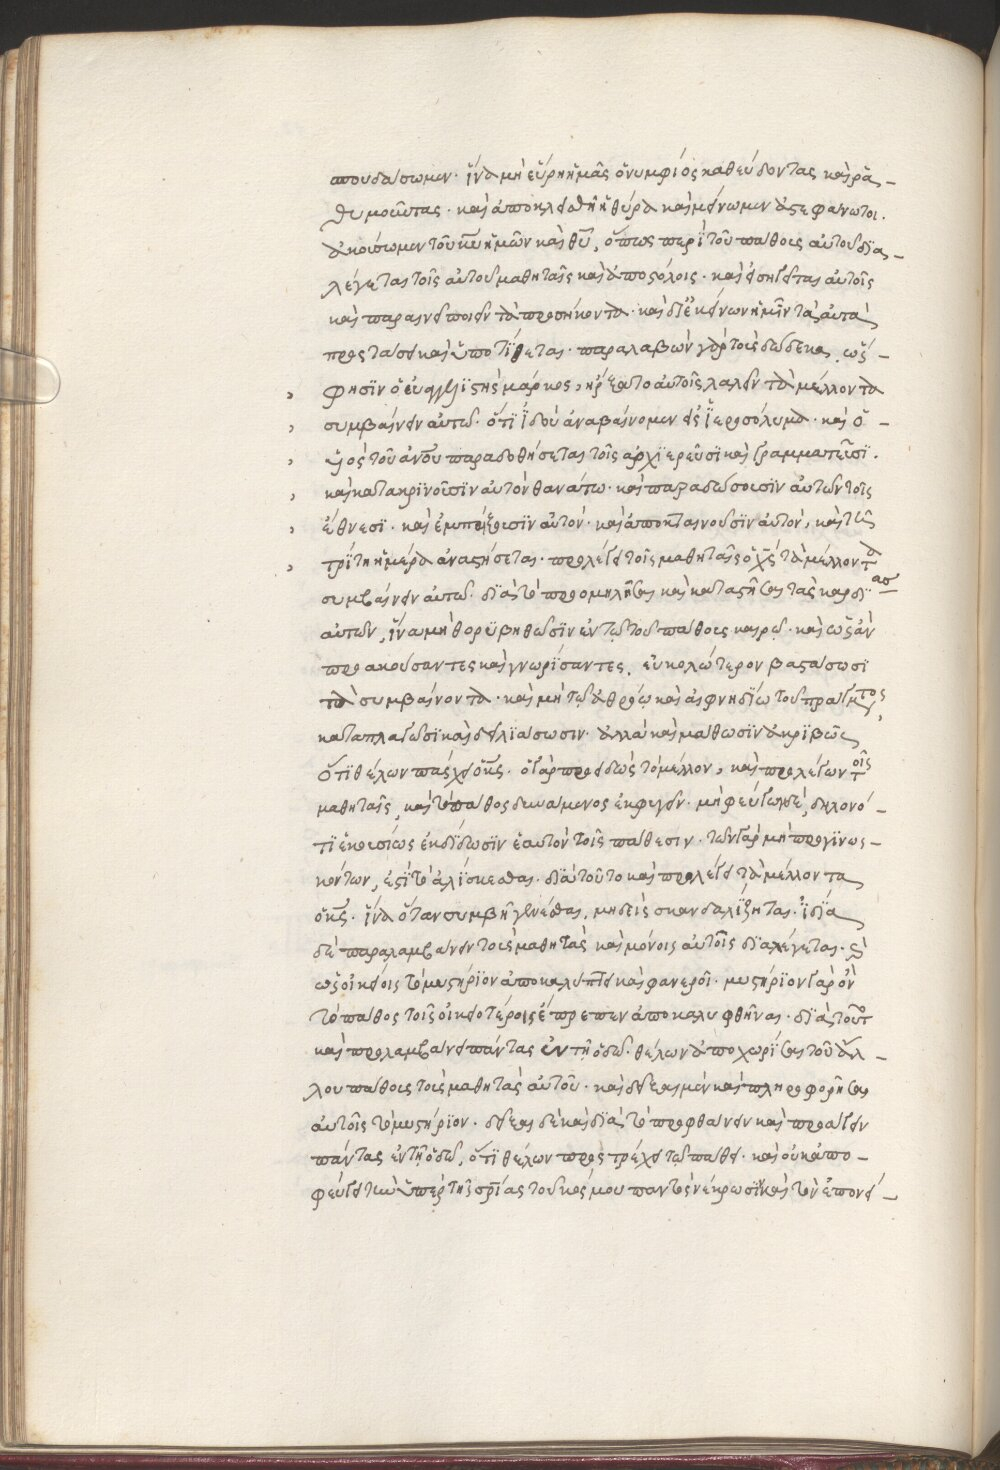 σπουδάσωμεν· ἵνα μὴ εὕρῃ ἡμᾶς ὁ νυμφίος καθεύδοντας καὶ ρᾳ-
θυμοῦντας· καὶ ἀποκλεισθῇ ἡ θύρα καὶ μείνωμεν ἀστεφάνωτοι.
ἀκούσωμεν τοῦ κ̅υ̅ ἡμῶν καὶ θ̅υ̅, ὅπως περὶ τοῦ πάθους αὐτοῦ δϊα-
λέγεται τοῖς αὐτοῦ μαθηταῖς καὶ ἀποστόλοις· καὶ ἐσηγεῖται αὐτοῖς
καὶ παραινεῖ ποιεῖν τὰ προσήκοντα· καὶ δι' ἐκείνων ἡμῖν ταῦτα
προστάσσει καὶ ὑποτίθεται· παραλαβὼν γὰρ τοὺς δώδεκα, ὥς
φησὶν ὁ εὐαγγελϊστὴς μάρκος, ἤρξατο αὐτοῖς λαλεῖν τὰ μέλλοντα
συμβαίνειν αὐτῷ· ὅτϊ ἰδοὺ ἀναβαίνομεν εἰς ἱεροσόλυμα· καὶ ὁ -
υἱὸς τοῦ ἀν̅ο̅υ̅ παραδοθήσεται τοῖς ἀρχϊερεῦσϊ καὶ γραμματεῦσϊ.
καὶ κατακρϊνοῦσϊν αὐτὸν θανάτω· καὶ παραδώσουσϊν αὐτὸν τοῖς
ἔθνεσϊ· καὶ ἐμπαίξουσϊν αὐτὸν· καὶ ἀποκτανοῦσϊν αὐτὸν, καὶ τῇ
τρίτη ἡμέρα ἀναστήσεται· προλέγει τοῖς μαθηταῖς ὁ χ̅ς̅ τὰ μέλλοντα
συμβαίνειν αὐτῷ· δϊὰ τὸ προομηλῆσαι καὶ καταστῆσαι τὰς καρδϊας
αὐτῶν, ἵνα μὴ θορϋβηθῶσϊν ἐν τῷ τοῦ πάθους καιρῷ· καὶ ὡς ἂν
προακούσαντες καὶ γνωρϊσαντες, εὐκολώτερον βαστάσωσϊ
τὰ συμβαίνοντα· καὶ μὴ τῷ ἀθρόῳ καὶ αἰφνηδίω τοῦ πράγματος,
καταπλαγῶσϊ καὶ δειλϊάσωσιν· ἀλλὰ καὶ μάθωσϊν ἀκρϊβῶς
ὅτϊ θέλων πάσχει ὁ κ̅ς̅. ὁ γὰρ προειδὼς τὸ μέλλον, καὶ προλέγων τοῖς
μαθηταῖς, καὶ τὸ πάθος δυνάμενος ἐκφυγεῖν· μὴ φεύγων δὲ, δηλονό-
τϊ ἑκουσίως ἐκδίδωσϊν ἑαυτὸν τοῖς πάθεσιν· τῶν γὰρ μὴ προγϊνωσ-
κόντων, ἐστὶ τὸ ἁλίσκεσθαι. διὰ τοῦτο καὶ προλέγει τὰ μέλλοντα
ὁ κ̅ς̅. ἵνα ὅταν συμβῇ γενέσθαι, μηδεὶς σκανδαλϊζηται. ἰδΐα
δὲ παραλαμβάνειν τοὺς μαθητὰς καὶ μόνοις αὐτοῖς διαλέγεται· καὶ
ὡς οἰκείοις τὸ μυστήρϊον ἀποκαλύπτει καὶ φανεροῖ· μυστήρϊον γὰρ ὂν
τὸ πάθος τοῖς οἰκειοτέροις ἔπρεπεν ἀποκαλυφθῆναι. δϊὰ τοῦτο
καὶ προλαμβάνει πάντας ἐν τῇ ὁδῷ· θέλων ἀποχωρῖσαι τοῦ ἄλ-
λου πλήθους τοὺς μαθητὰς αὐτοῦ· καὶ δεῖξαι μὲν καὶ πληροφορῆσαι
αὐτοῖς τὸ μυστήρϊον· δεῖξαι δὲ καὶ δϊὰ τὸ προφθάνειν καὶ προάγειν
πάντας ἐν τῇ ὁδῷ, ὅτϊ θέλων προστρέχει τῷ πάθει· καὶ οὐκ ἀπο-
φεύγει τὴν ὑπὲρ τῆς σρ̅ίας τοῦ κόσμου παντὸς νέκρωσϊν καὶ τὸν ἐπονεί-